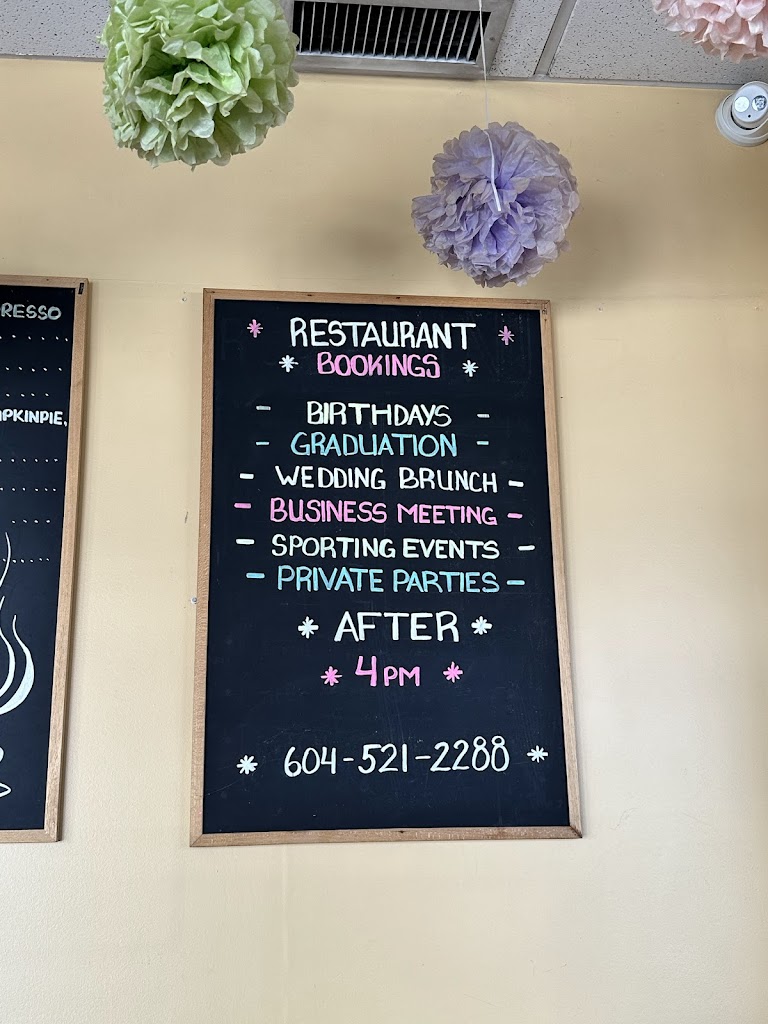 RESTAURANT
BOOKINGS
- BIRTHDAYS -
- GRADUATION -
- WEDDING BRUNCH -
- BUSINESS MEETING -
- SPORTING EVENTS -
- PRIVATE PARTIES -
* AFTER *
* 4PM *
* 604-521-2288 *